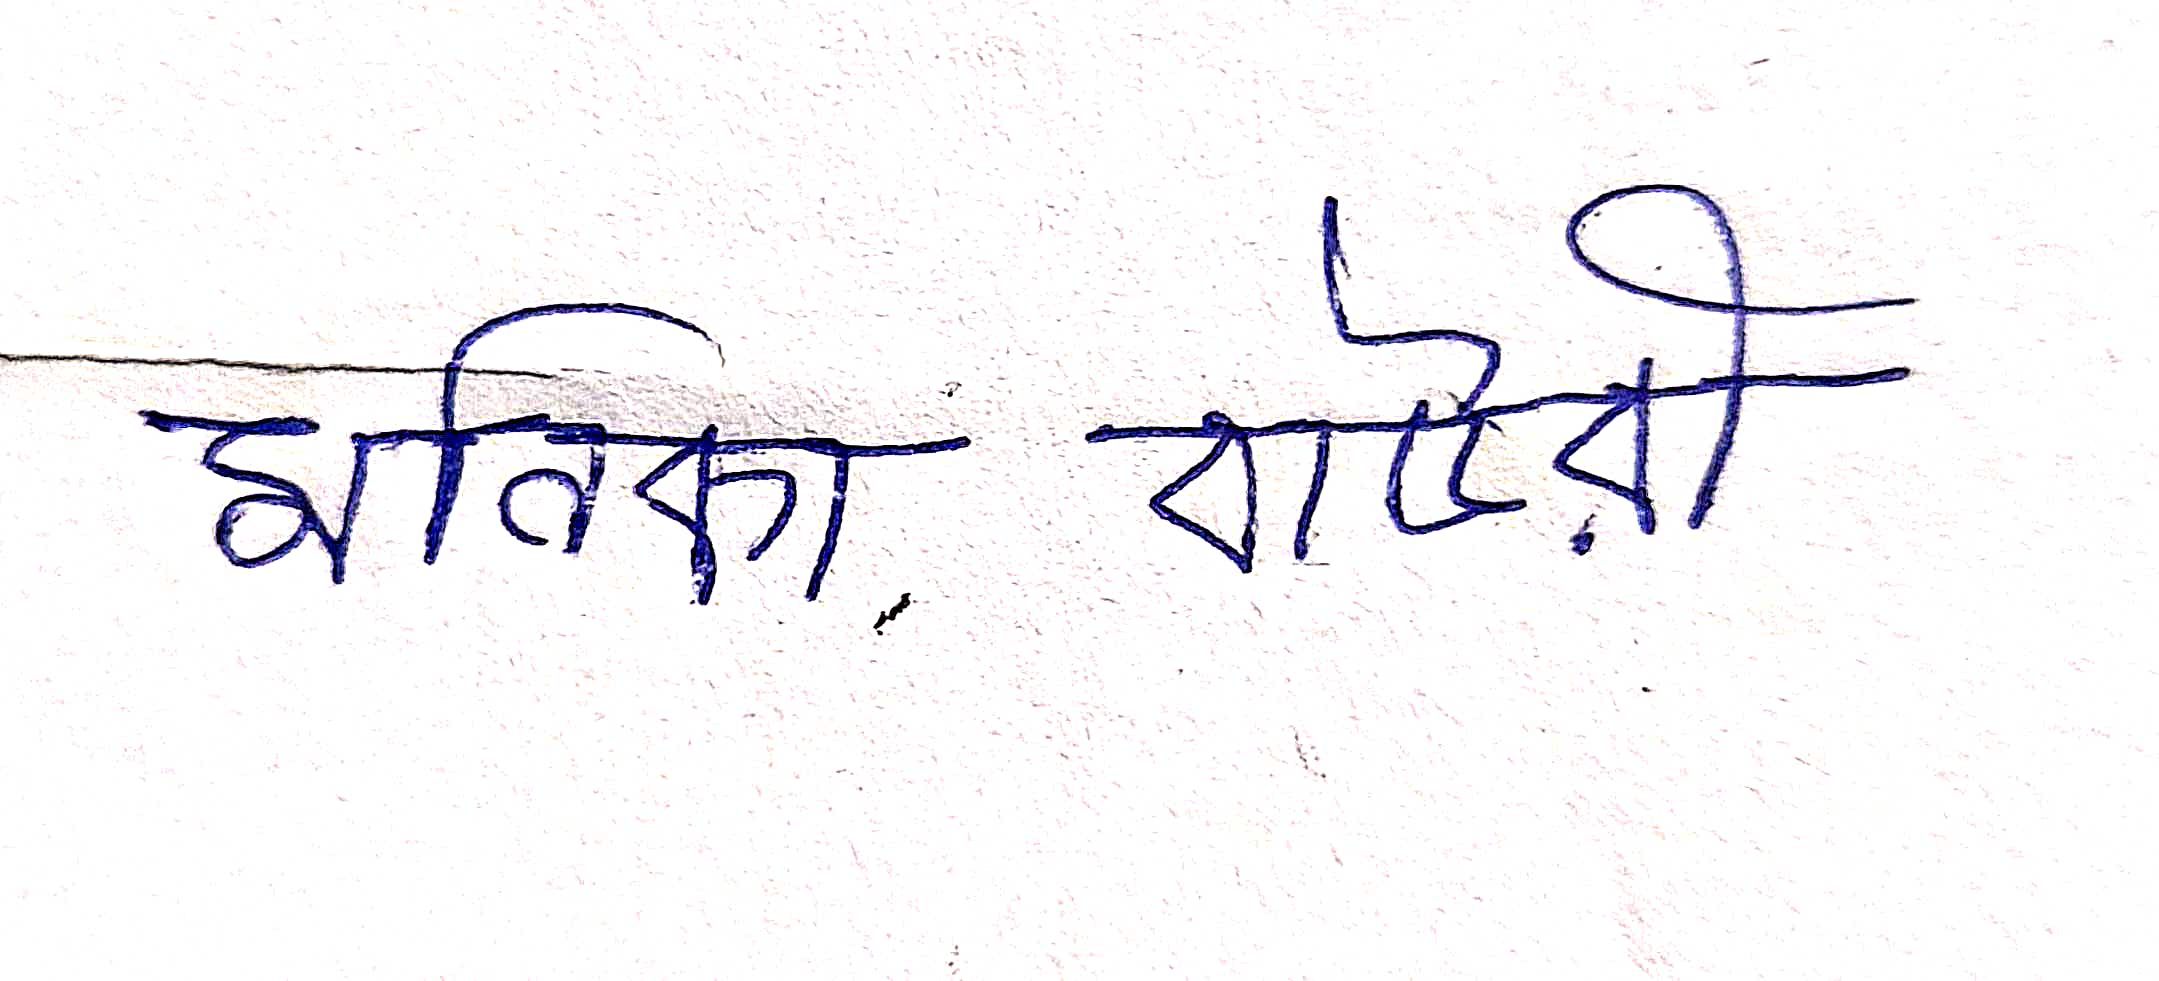 মতিকা বাটরী